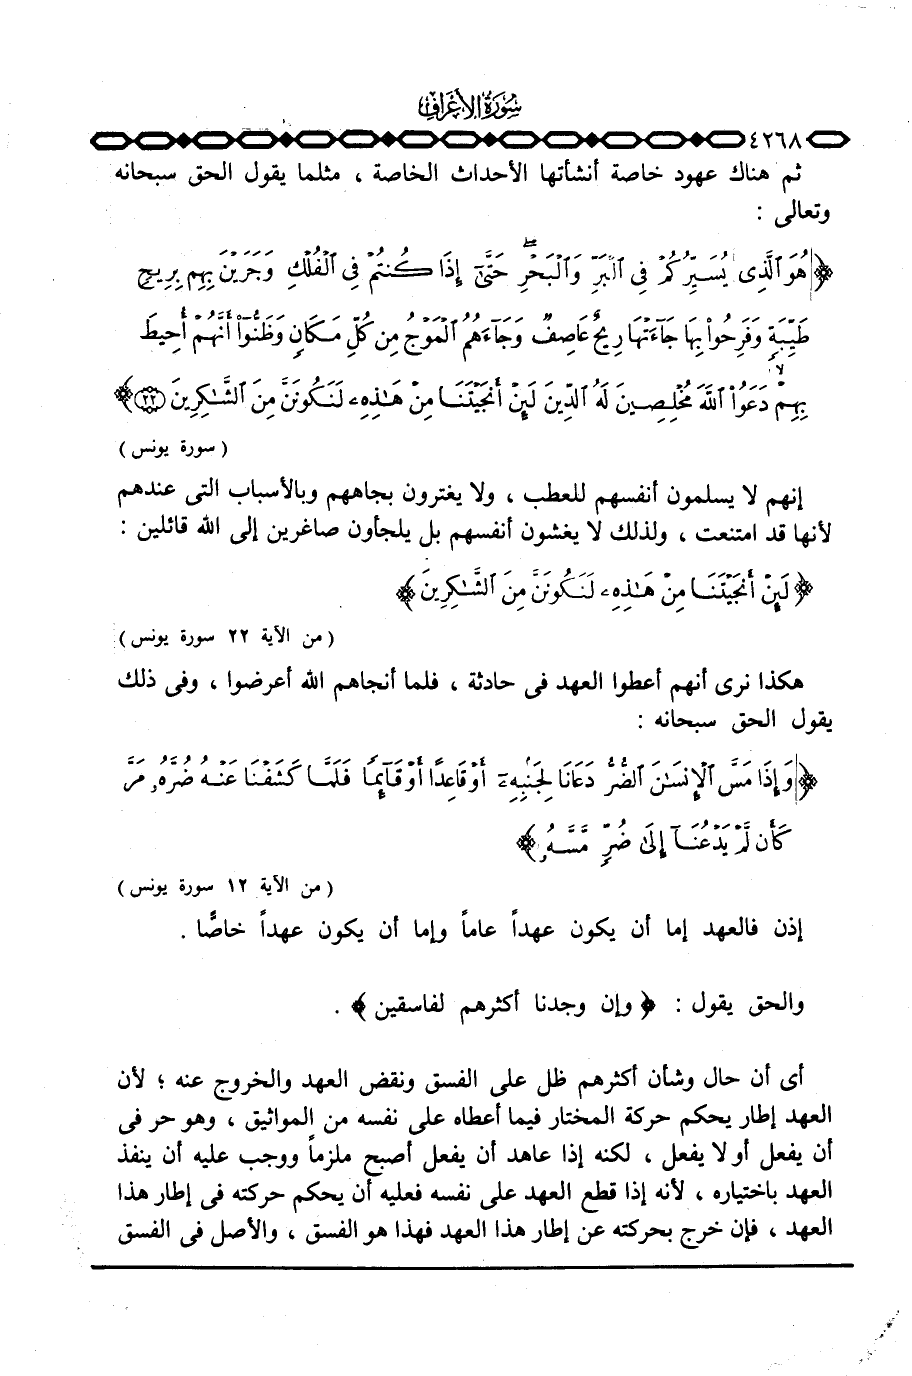 سورة الأعراف
٤٢٦٨
ثم هناك عهود خاصة أنشأتها الأحداث الخاصة ، مثلما يقول الحق سبحانه
وتعالى :
﴿ هُوَ ٱلَّذِى يُسَيِّرُكُمْ فِى ٱلْبَرِّ وَٱلْبَحْرِ ۖ حَتَّىٰٓ إِذَا كُنتُمْ فِى ٱلْفُلْكِ وَجَرَيْنَ بِهِم بِرِيحٍ
طَيِّبَةٍ وَفَرِحُوا۟ بِهَا جَآءَتْهَا رِيحٌ عَاصِفٌ وَجَآءَهُمُ ٱلْمَوْجُ مِن كُلِّ مَكَانٍ وَظَنُّوٓا۟ أَنَّهُمْ أُحِيطَ
بِهِمْ ۙ دَعَوُا۟ ٱللَّهَ مُخْلِصِينَ لَهُ ٱلدِّينَ لَئِنْ أَنجَيْتَنَا مِنْ هَٰذِهِۦ لَنَكُونَنَّ مِنَ ٱلشَّٰكِرِينَ ﴿٢٢﴾ ﴾
( سورة يونس )
إنهم لا يسلمون أنفسهم للعطب ، ولا يغترون بجاههم وبالأسباب التى عندهم
لأنها قد امتنعت ، ولذلك لا يغشون أنفسهم بل يلجأون صاغرين إلى الله قائلين :
﴿ لَئِنْ أَنجَيْتَنَا مِنْ هَٰذِهِۦ لَنَكُونَنَّ مِنَ ٱلشَّٰكِرِينَ ﴾
( من الآية ٢٢ سورة يونس )
هكذا نرى أنهم أعطوا العهد فى حادثة ، فلما أنجاهم الله أعرضوا ، وفى ذلك
يقول الحق سبحانه :
﴿ وَإِذَا مَسَّ ٱلْإِنسَٰنَ ٱلضُّرُّ دَعَانَا لِجَنۢبِهِۦٓ أَوْ قَاعِدًا أَوْ قَآئِمًا فَلَمَّا كَشَفْنَا عَنْهُ ضُرَّهُۥ مَرَّ
كَأَن لَّمْ يَدْعُنَآ إِلَىٰ ضُرٍّ مَّسَّهُۥ ﴾
( من الآية ١٢ سورة يونس )
إذن فالعهد إما أن يكون عهداً عاماً وإما أن يكون عهداً خاصًّا .
والحق يقول : ﴿ وإن وجدنا أكثرهم لفاسقين ﴾ .
أى أن حال وشأن أكثرهم ظل على الفسق ونقض العهد والخروج عنه ؛ لأن
العهد إطار يحكم حركة المختار فيما أعطاه على نفسه من المواثيق ، وهو حر فى
أن يفعل أو لا يفعل ، لكنه إذا عاهد أن يفعل أصبح ملزماً ووجب عليه أن ينفذ
العهد باختياره ، لأنه إذا قطع العهد على نفسه فعليه أن يحكم حركته فى إطار هذا
العهد ، فإن خرج بحركته عن إطار هذا العهد فهذا هو الفسق ، والأصل فى الفسق